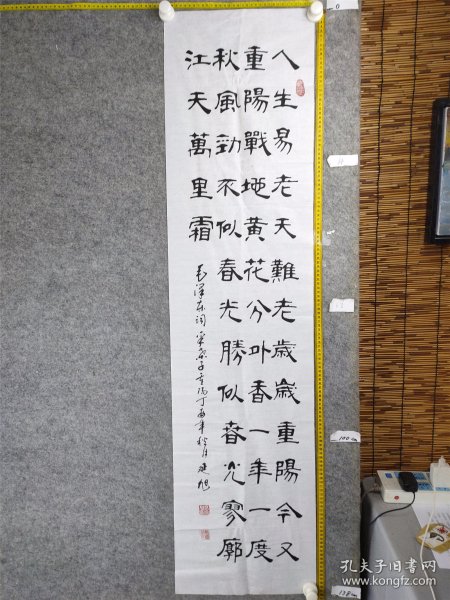 人生易老天難老歲歲重陽今又
重陽戰地黃花分外香一年一度
秋風勁不似春光勝似春光寥廓
江天萬里霜
毛泽东词采桑子重阳丁酉年秋月建旭
0
100cm
138cm
孔夫子旧书网
kongfz.com